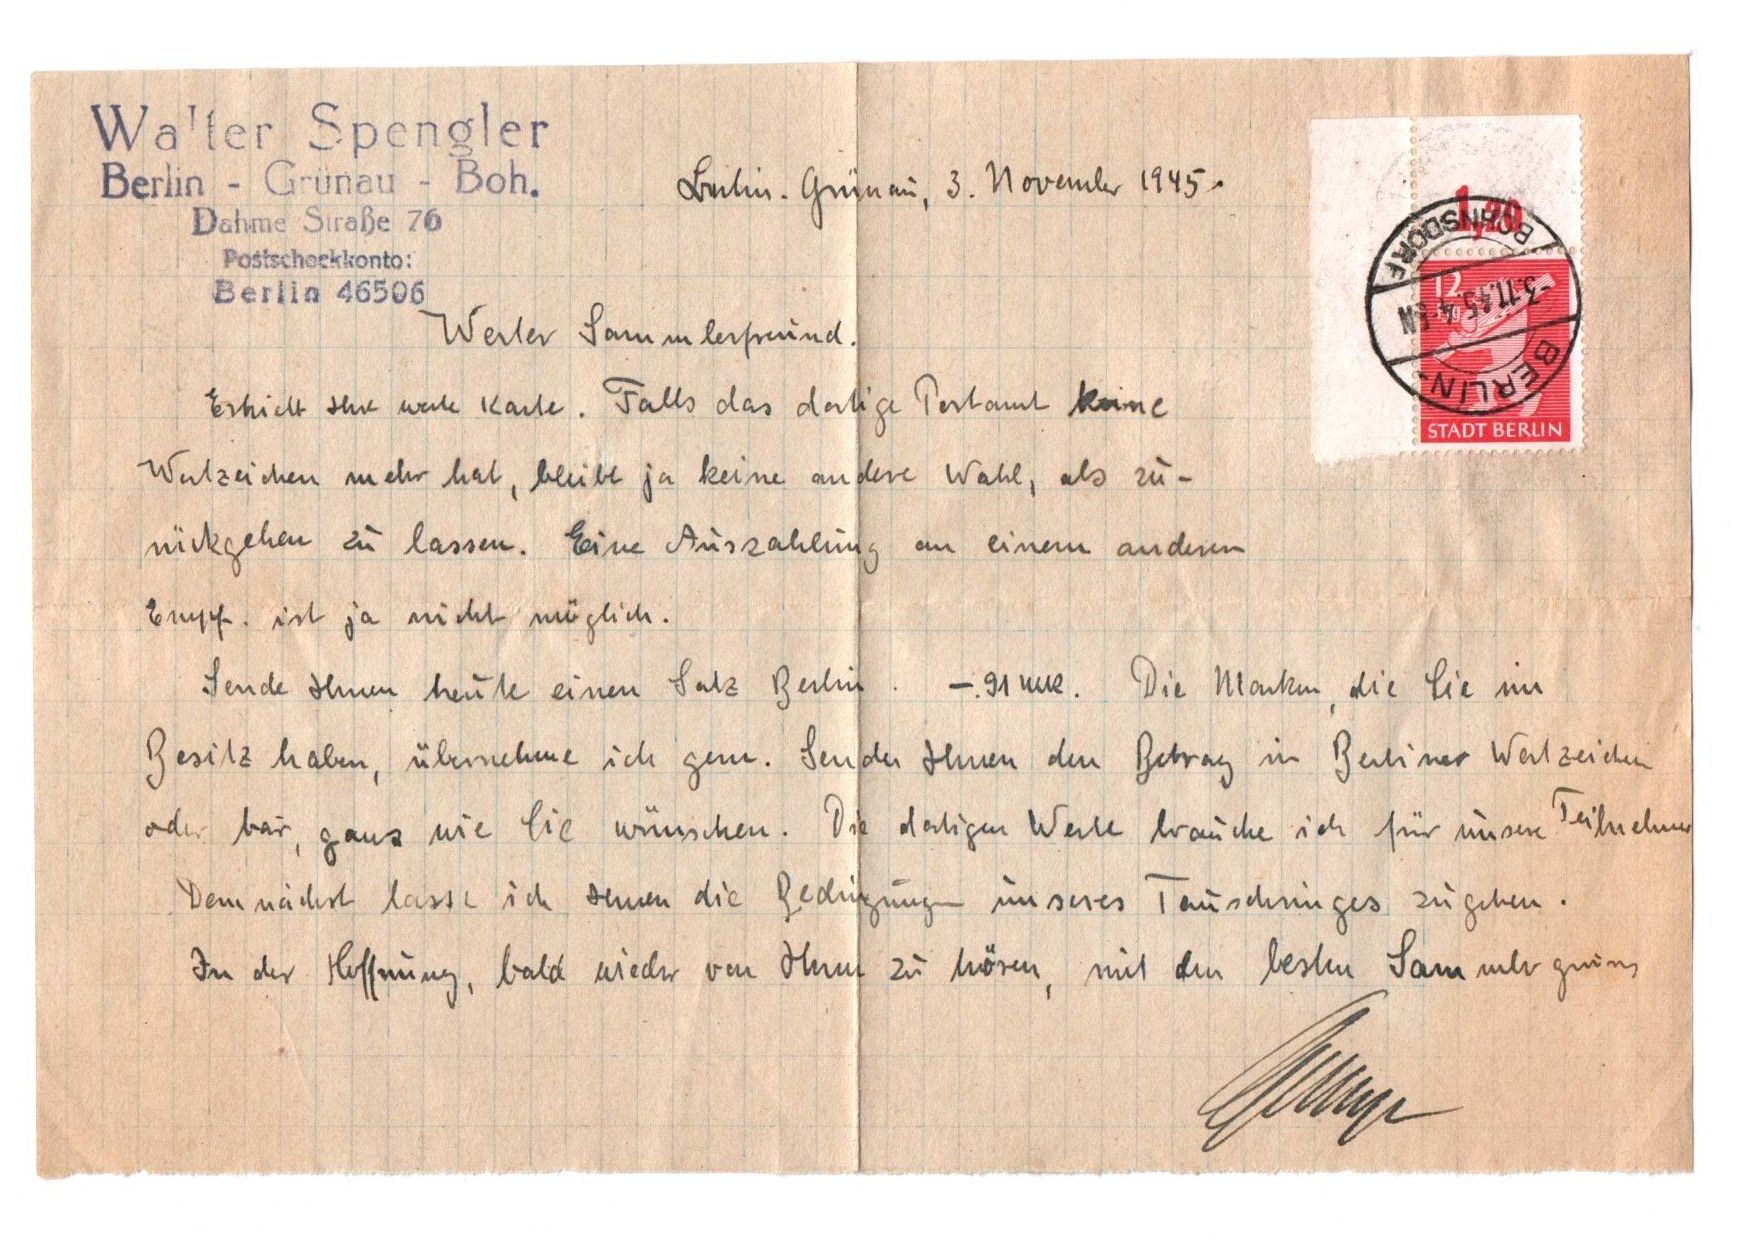 Walter Spengler
Berlin - Grünau - Boh.
Dahme Straße 76
Postscheckkonto:
Berlin 46506
Berlin-Grünau, 3. November 1945.
1,20
BERLIN-BOHNSDORF
-3.11.45.4-5N
12
STADT BERLIN
Werter Sammlerfreund.
Erhielt Ihre werte Karte. Falls das dortige Postamt keine
Wertzeichen mehr hat, bleibt ja keine andere Wahl, als zu-
rückgehen zu lassen. Eine Auszahlung an einem anderen
Empf. ist ja nicht möglich.
Sende Ihnen heute einen Satz Berlin. -.91 Die Marken, die Sie im
Besitz haben, übernehme ich gern. Sende Ihnen den Betrag in Berliner Wertzeichen
oder bar, ganz wie Sie wünschen. Die dortigen Werte brauche ich für unsere Teilnehmer
Demnächst lasse ich Ihnen die Bedingungen unseres Tauschringes zugehen.
In der Hoffnung, bald wieder von Ihnen zu hören, mit den besten Sammlergruss